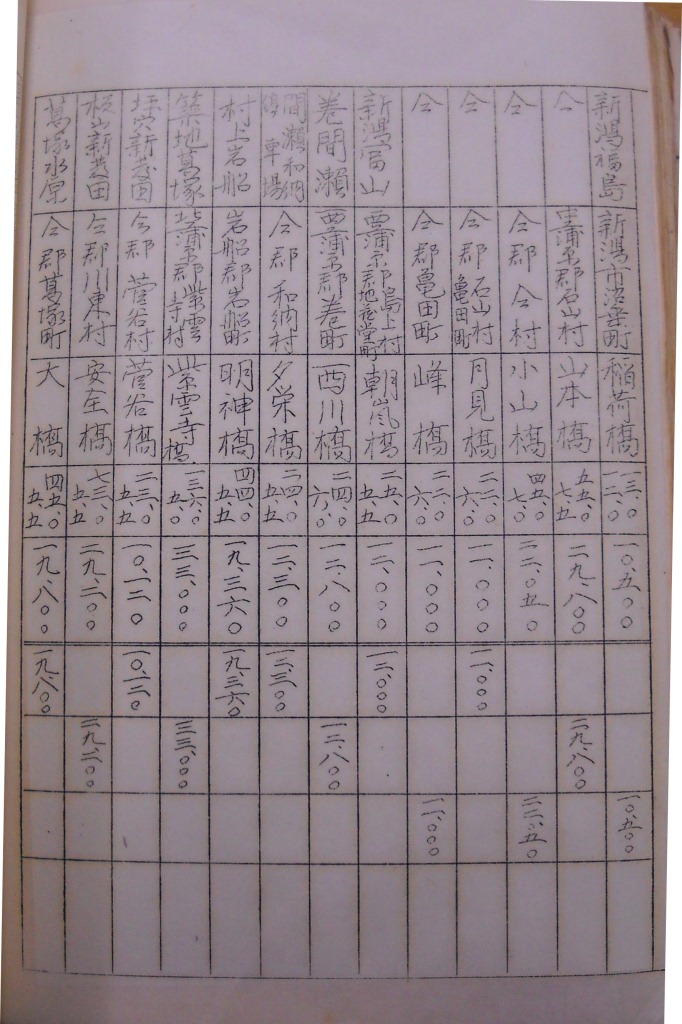 新潟福島 新潟市沼垂町 稲荷橋 一三.〇 一二.〇 一〇.五〇〇 一〇.五〇〇
仝 中蒲原郡石山村 山本橋 五五.〇 七.五 二九.八〇〇 二九.八〇〇
仝 仝郡仝村 小山橋 四五.〇 七.〇 二二.〇五〇 二二.〇五〇
仝 仝郡 石山村 亀田町 月見橋 二二.〇 六.〇 一一.〇〇〇 一一.〇〇〇
仝 仝郡亀田町 峰橋 二二.〇 六.〇 一一.〇〇〇 一一.〇〇〇
新潟富山 西蒲原郡 島上村 地蔵堂町 朝嵐橋 二五.〇 五.五 一二.〇〇〇 一二.〇〇〇
巻間瀬 西蒲原郡巻町 西川橋 二四.〇 六.〇 一二.八〇〇 一二.八〇〇
間瀬和納停車場 仝郡和納村 夕栄橋 二四.〇 五.五 一二.三〇〇 一二.三〇〇
村上岩船 岩船郡岩船町 明神橋 四四.〇 五.五 一九.三六〇 一九.三六〇
築地葛塚 北蒲原郡紫雲寺村 紫雲寺橋 一三六.〇 五.〇 三三.〇〇〇 三三.〇〇〇
坪穴新発田 仝郡菅谷村 菅谷橋 二三.〇 五.五 一〇.一二〇 一〇.一二〇
松山新発田 仝郡川東村 安全橋 七三.〇 五.五 二九.二〇〇 二九.二〇〇
葛塚水原 仝郡葛塚町 大橋 四五.〇 五.五 一九.八〇〇 一九.八〇〇